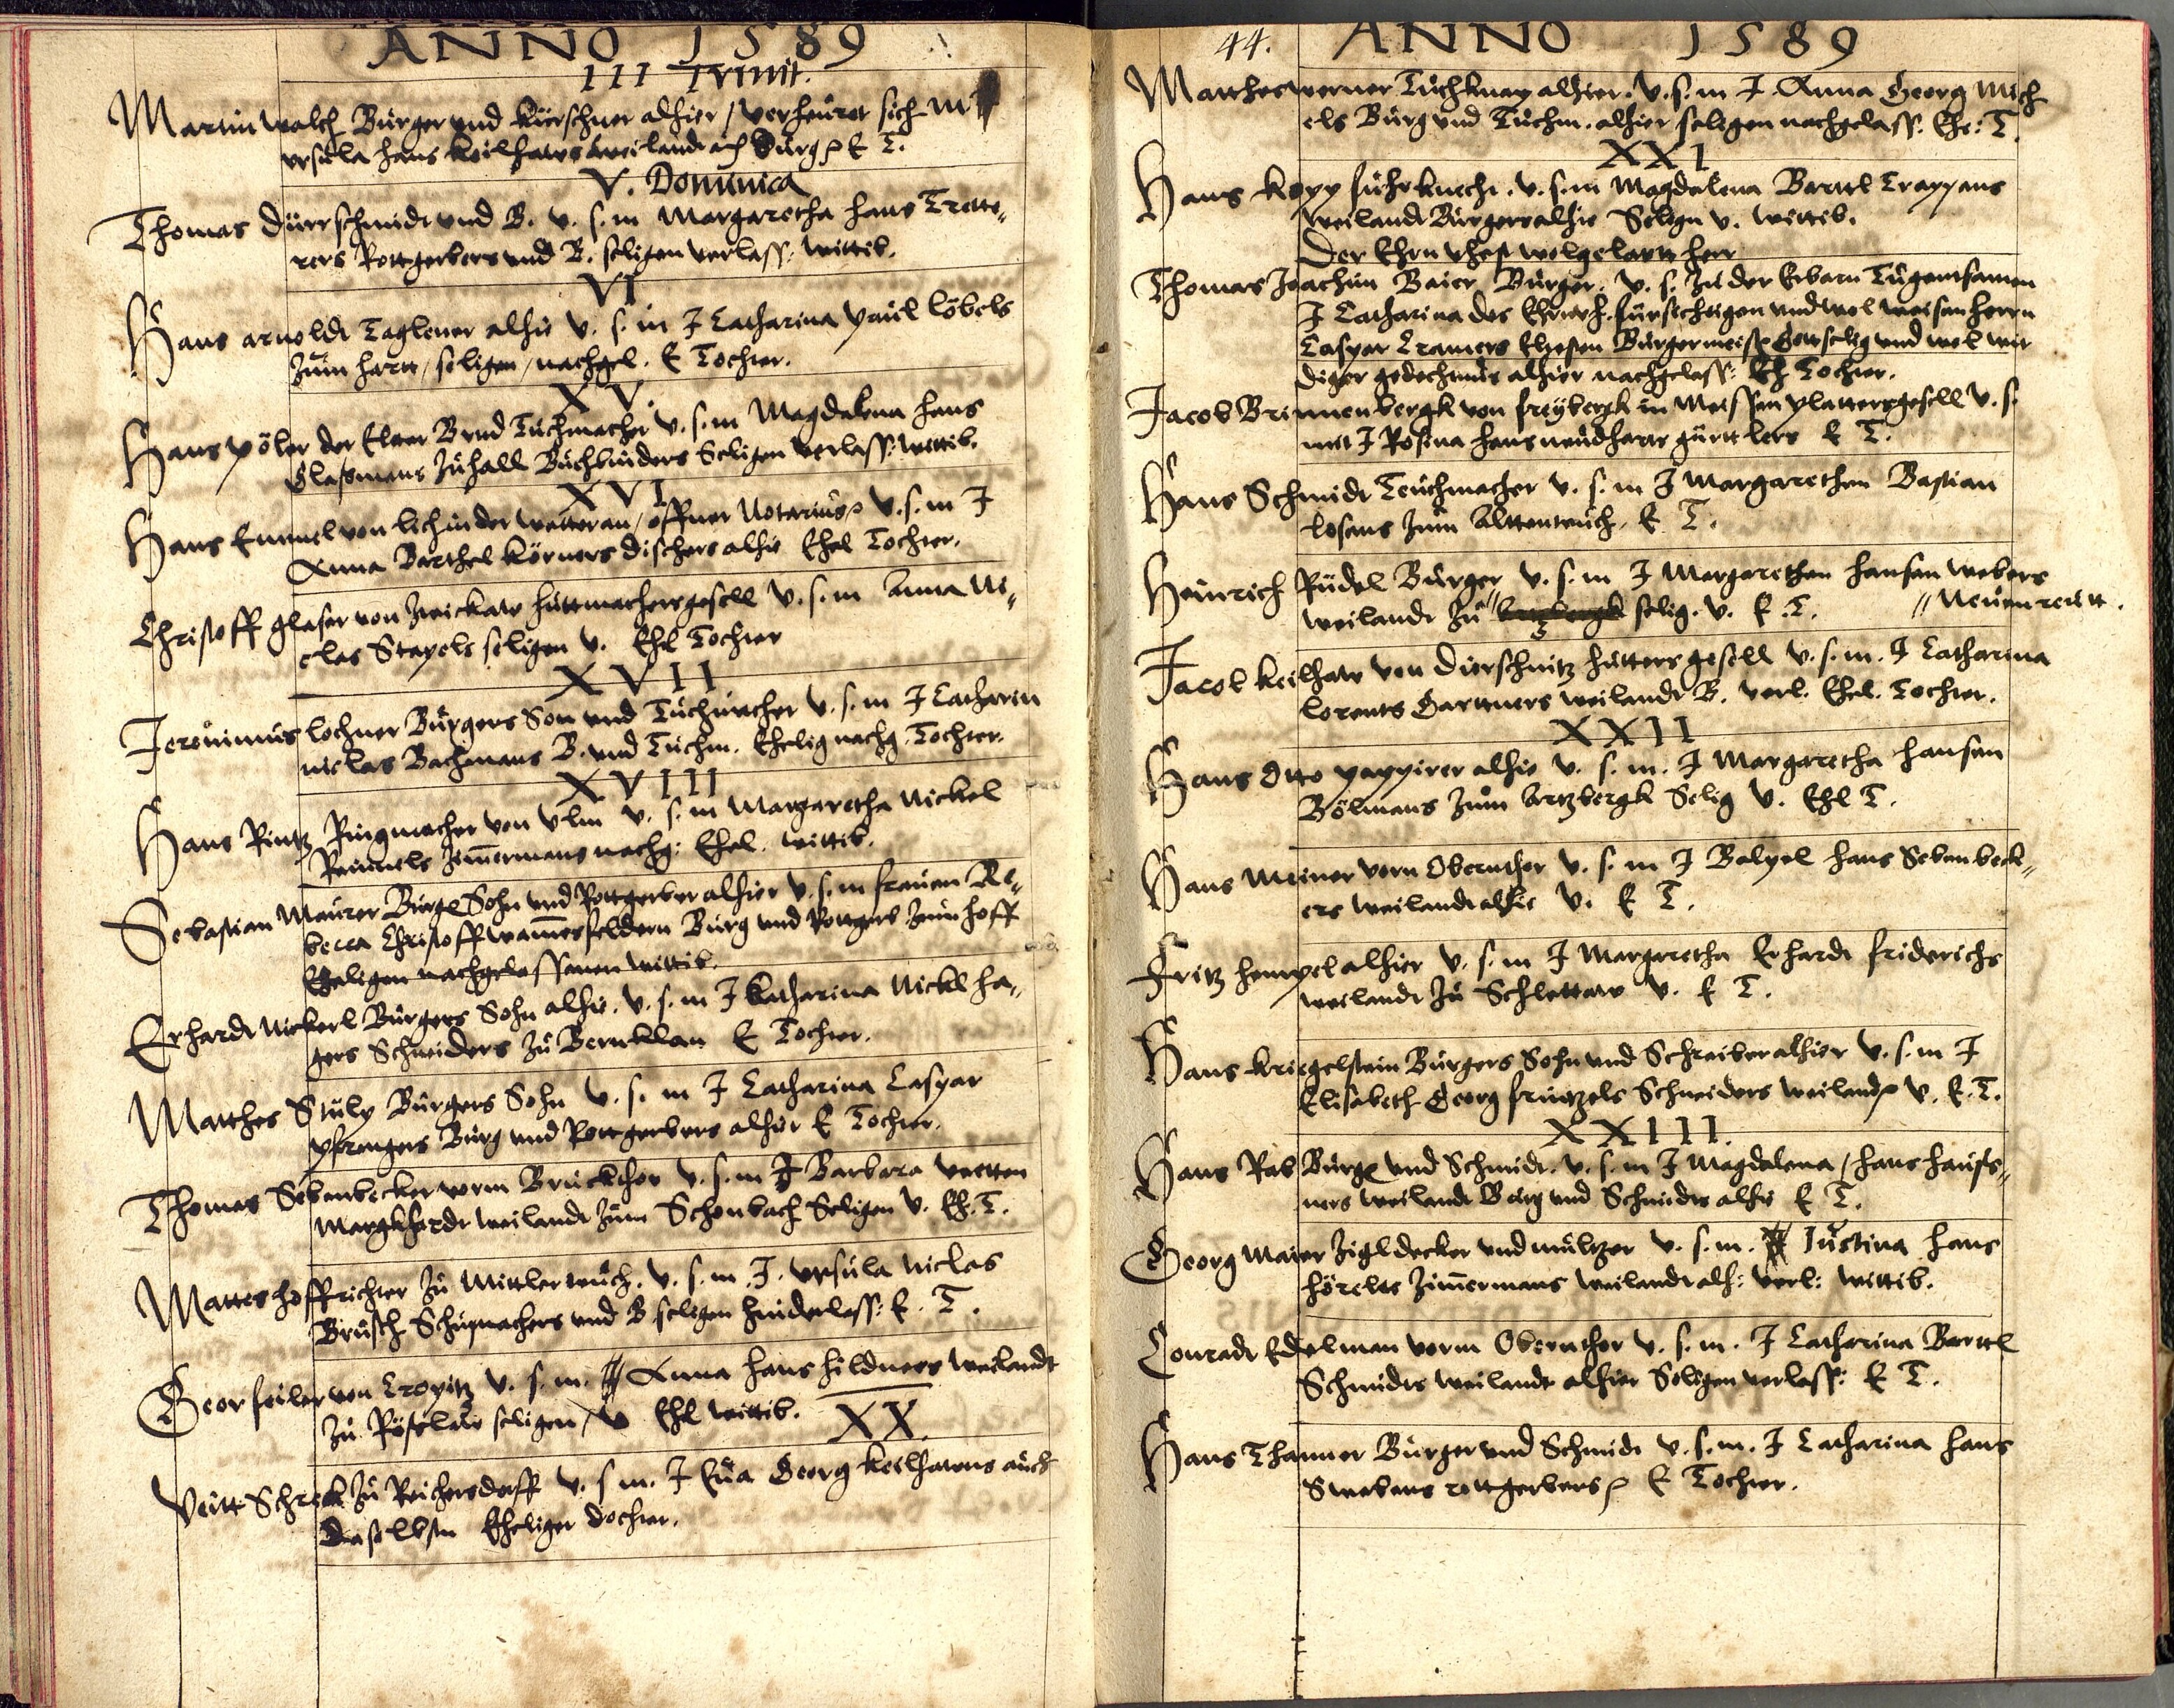 ANNO 1589
III Trinit.
Martin walch Bürger und Kürschner alhier / verheüret sich mit
ursula hans keilhaws weilandt auch Bürg E T.
V. Dominica
Thomas Dürrschmidt und B. v. s. m Margaretha hans Trette,
rers Rottgerbers und B. seligen verlass: wittib.
VI
Hans arnoldt Taglener alhie v. s. m J Catharina paul löbels
zum hartt / seligen / nachgel. E Tochter.
XV.
Hans pöler der Elter B und Tuchmacher v. s. m Magdalena hans
Glaßmans zu hall Buchbinders Seligen verlass: wittib.
XVI
Hans Emmel von lich in der wetteraw / offner Notarius v. s. m J
Anna Barthel körners dischers alhie Ehel Tochter.
Christoff glaser von Zwickaw huttmachersgesell v. s. m Anna Ni,
clas Stapels seligen v. Ehl Tochter
XVII
Jeronimus lochner Bürgers Son und Tuchmacher v. s. m J Catharin
niclas Bachmans B. und Tuchm. Ehelig nachg. Tochter.
XVIII
Hans Rintz Ringmacher von Ulm v. s. m Margaretha Nickel
Reimels Zimermans nachg: Ehel. wittib.
Sebastian Maurer Bürgers Sohn und Rottgerber alhier v. s. m frauen Re,
becca Christoff wamesfeldern Bürg und Rottgerb zum hoff
Eheligen nachgelassenen wittib.
Erhardt Nickerl Bürgers Sohn alhie. v. s. m J katharina Nickl ha,
gers Schneiders zu Bernklau E Tochter.
Matthes Stulp Bürgers Sohn v. s. m J Catharina Caspar
pfrengers Bürg und Rottgerbers alhier E Tochter.
Thomas Sebenbecker vorm Bruckthor v. s. m J Barbara veitten
Margkhardt weilandt zum Schonbach Seligen v. Eh. T.
Mattes hoffrichter zu Mittlerteuch. v. s. m J. ursula Niclas
Brusch Schumachers und B seligen hinderlass: E. T.
Geor seiler von Cropitz v. s. m. Anna hans hildners weilandt
zu Röslaw seligen / v Ehl wittib.
XX.
Veitt Schreck zu Reichersdorff v. s m. J Eua Georg keilhawens auch
daselbsten Eheliger dochter.
44. ANNO 1589
Matthes werner Tuchknap alhier. v. s. m J Anna Georg Mich
els Bürg und Tuchm. alhier seligen nachgelass. Ehe: T.
XXI
Hans kopp fuhrknecht. v. s. m Magdalena Barttl Trappans
weilandt Bürgers alhie Selign v. wittib.
Der Ehrnvhest wolgelartte herr
Thomas Joachim Baier Bürger. v. s. zu der Erbarn Tugentsamen
J Catharina des Ehrnvh. fursichtigen und wol weisen herrn
Caspar Cramers Eltesten Bürgermeistr Gottselig und wol wir
diger gedechtnus alhier nachgelass: Eh Tochter.
Jacob Brinnenbergk von freybergk in Meissen plattersgesell v. s.
mitt J Rosina hans neudharts gürttlers E T.
Hans Schmidt Teuchmacher v. s. m J Margarethen Bastian
losens zum Alttenteuch. E T.
Heinrich Rüdel Bürger v. s. m J Margarethen hansen webers
weilandt zu selig. v. E. T. // Neuenreutt.
Jacob keilhaw von dürschnitz hutters gesell v. s. m. J Catharina
lorents Garttners weilandt B. verl. Ehel. Tochter.
XXII
Hans Otto pappirer alhie v. s. m. J Margaretha hansen
Bölmans zum Artzbergk Selig v. Ehl T.
Hans Meiner vorn Obernthor v. s. m J Balpel hans Sebenbeck,
ers weilandt alhie v. E T.
Fritz hempel alhier v. s. m J Margaretha Erhardt friderichs
weilandt zu Schlottaw v. E T.
Hans kriegelstein Bürgers Sohn und Schreiber alhier v. s. m J
Elisabeth Georg früntzels Schneiders weilandt v. E. T.
XXIII.
Hans Rab Bürger und Schmidt. v. s. m J Magdalena / hans haufs,
ners weilandt Bürg und Schmides alhie E T.
Georg Maier Zigldecker und multzer v. s. m. Justina hans
hörels Zimermans weilandt alh: verl: wittib.
Conradt Edelman vorm Obernthor v. s. m. J Catharina Barttl
Schmides weilandt alhier Seligen verlass: E T.
Hans Thanner Bürger und Schmidt v. s. m. J Catharina hans
Swabens rottgerbers E Tochter.